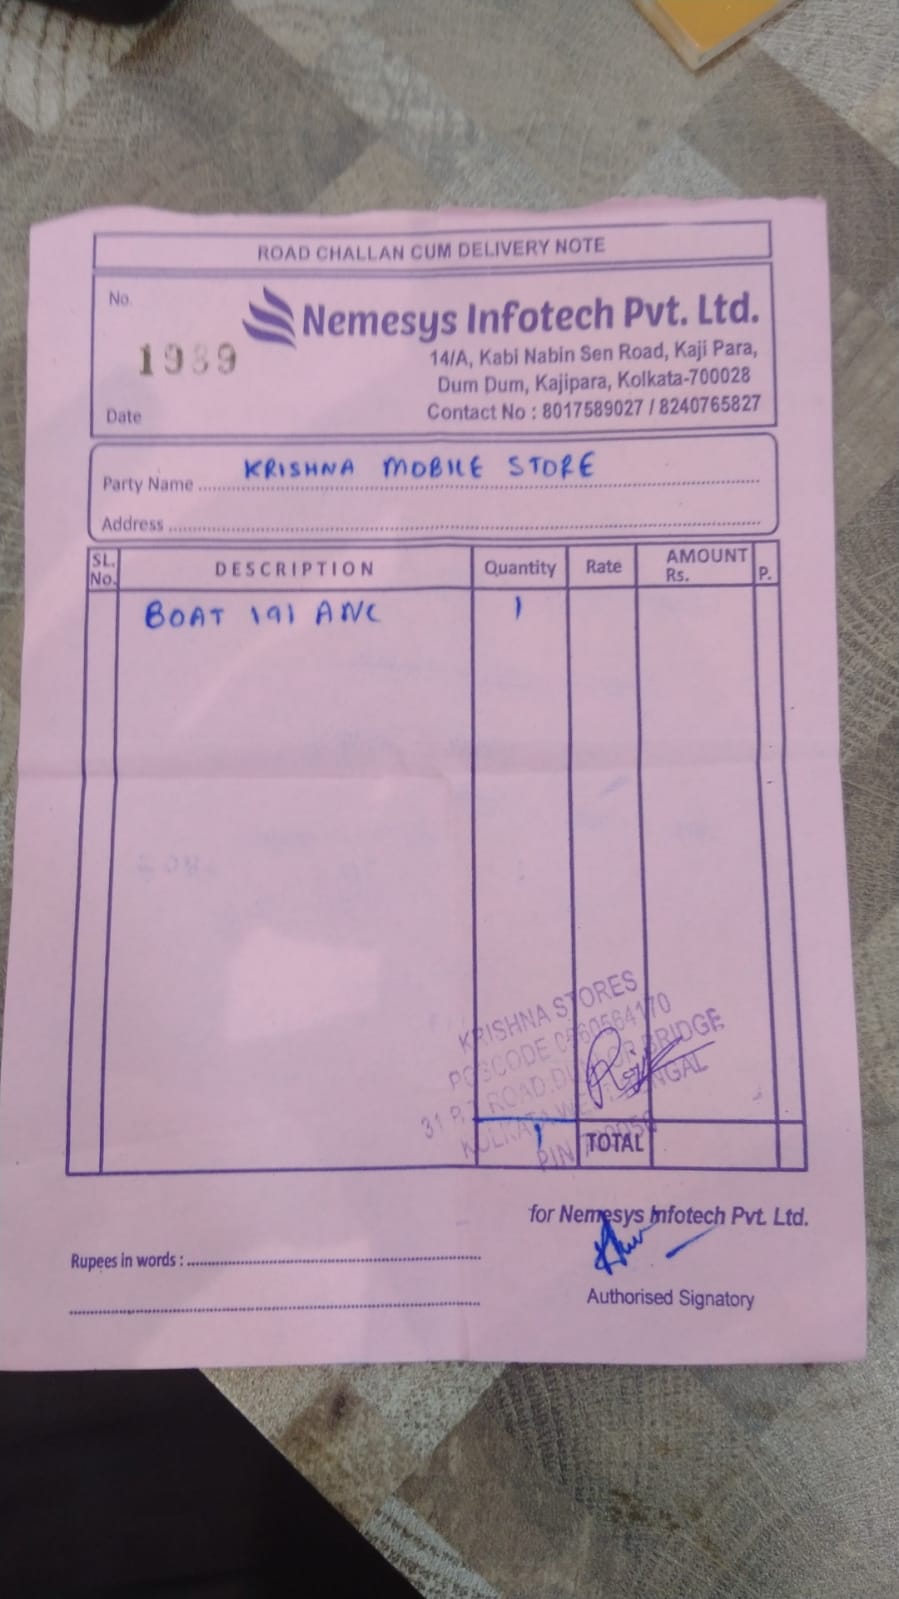 ROAD CHALLAN CUM DELIVERY NOTE
No.
1989
Nemesys Infotech Pvt. Ltd.
14/A, Kabi Nabin Sen Road, Kaji Para,
Dum Dum, Kajipara, Kolkata-700028
Contact No : 8017589027 / 8240765827
Date
Party Name KRISHNA MOBILE STORE
Address
SL. No. DESCRIPTION Quantity Rate AMOUNT Rs. P.
BOAT 191 ANC 1
KRISHNA STORES
POSCODE
31 ROAD BRIDGE
KOLKATA
PIN
1 TOTAL
for Nemesys Infotech Pvt. Ltd.
Rupees in words :
Authorised Signatory